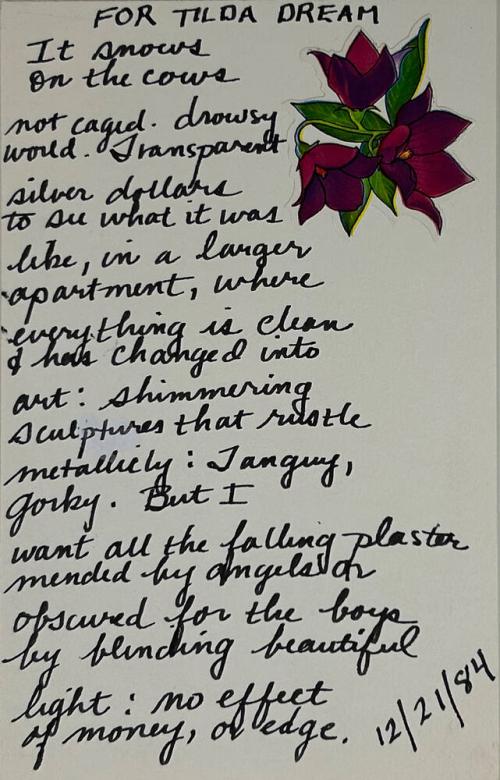 FOR TILDA DREAM
It snows
On the cows
not caged. drowsy
world. Transparent
silver dollars
to see what it was
like, in a larger
apartment, where
everything is clean
& has changed into
art: shimmering
sculptures that rustle
metallicly: Tanguy,
Gorky. But I
want all the falling plaster
mended by angels or
obscured for the boys
by blinding beautiful
light: no effect
of money, or edge.
12/21/84